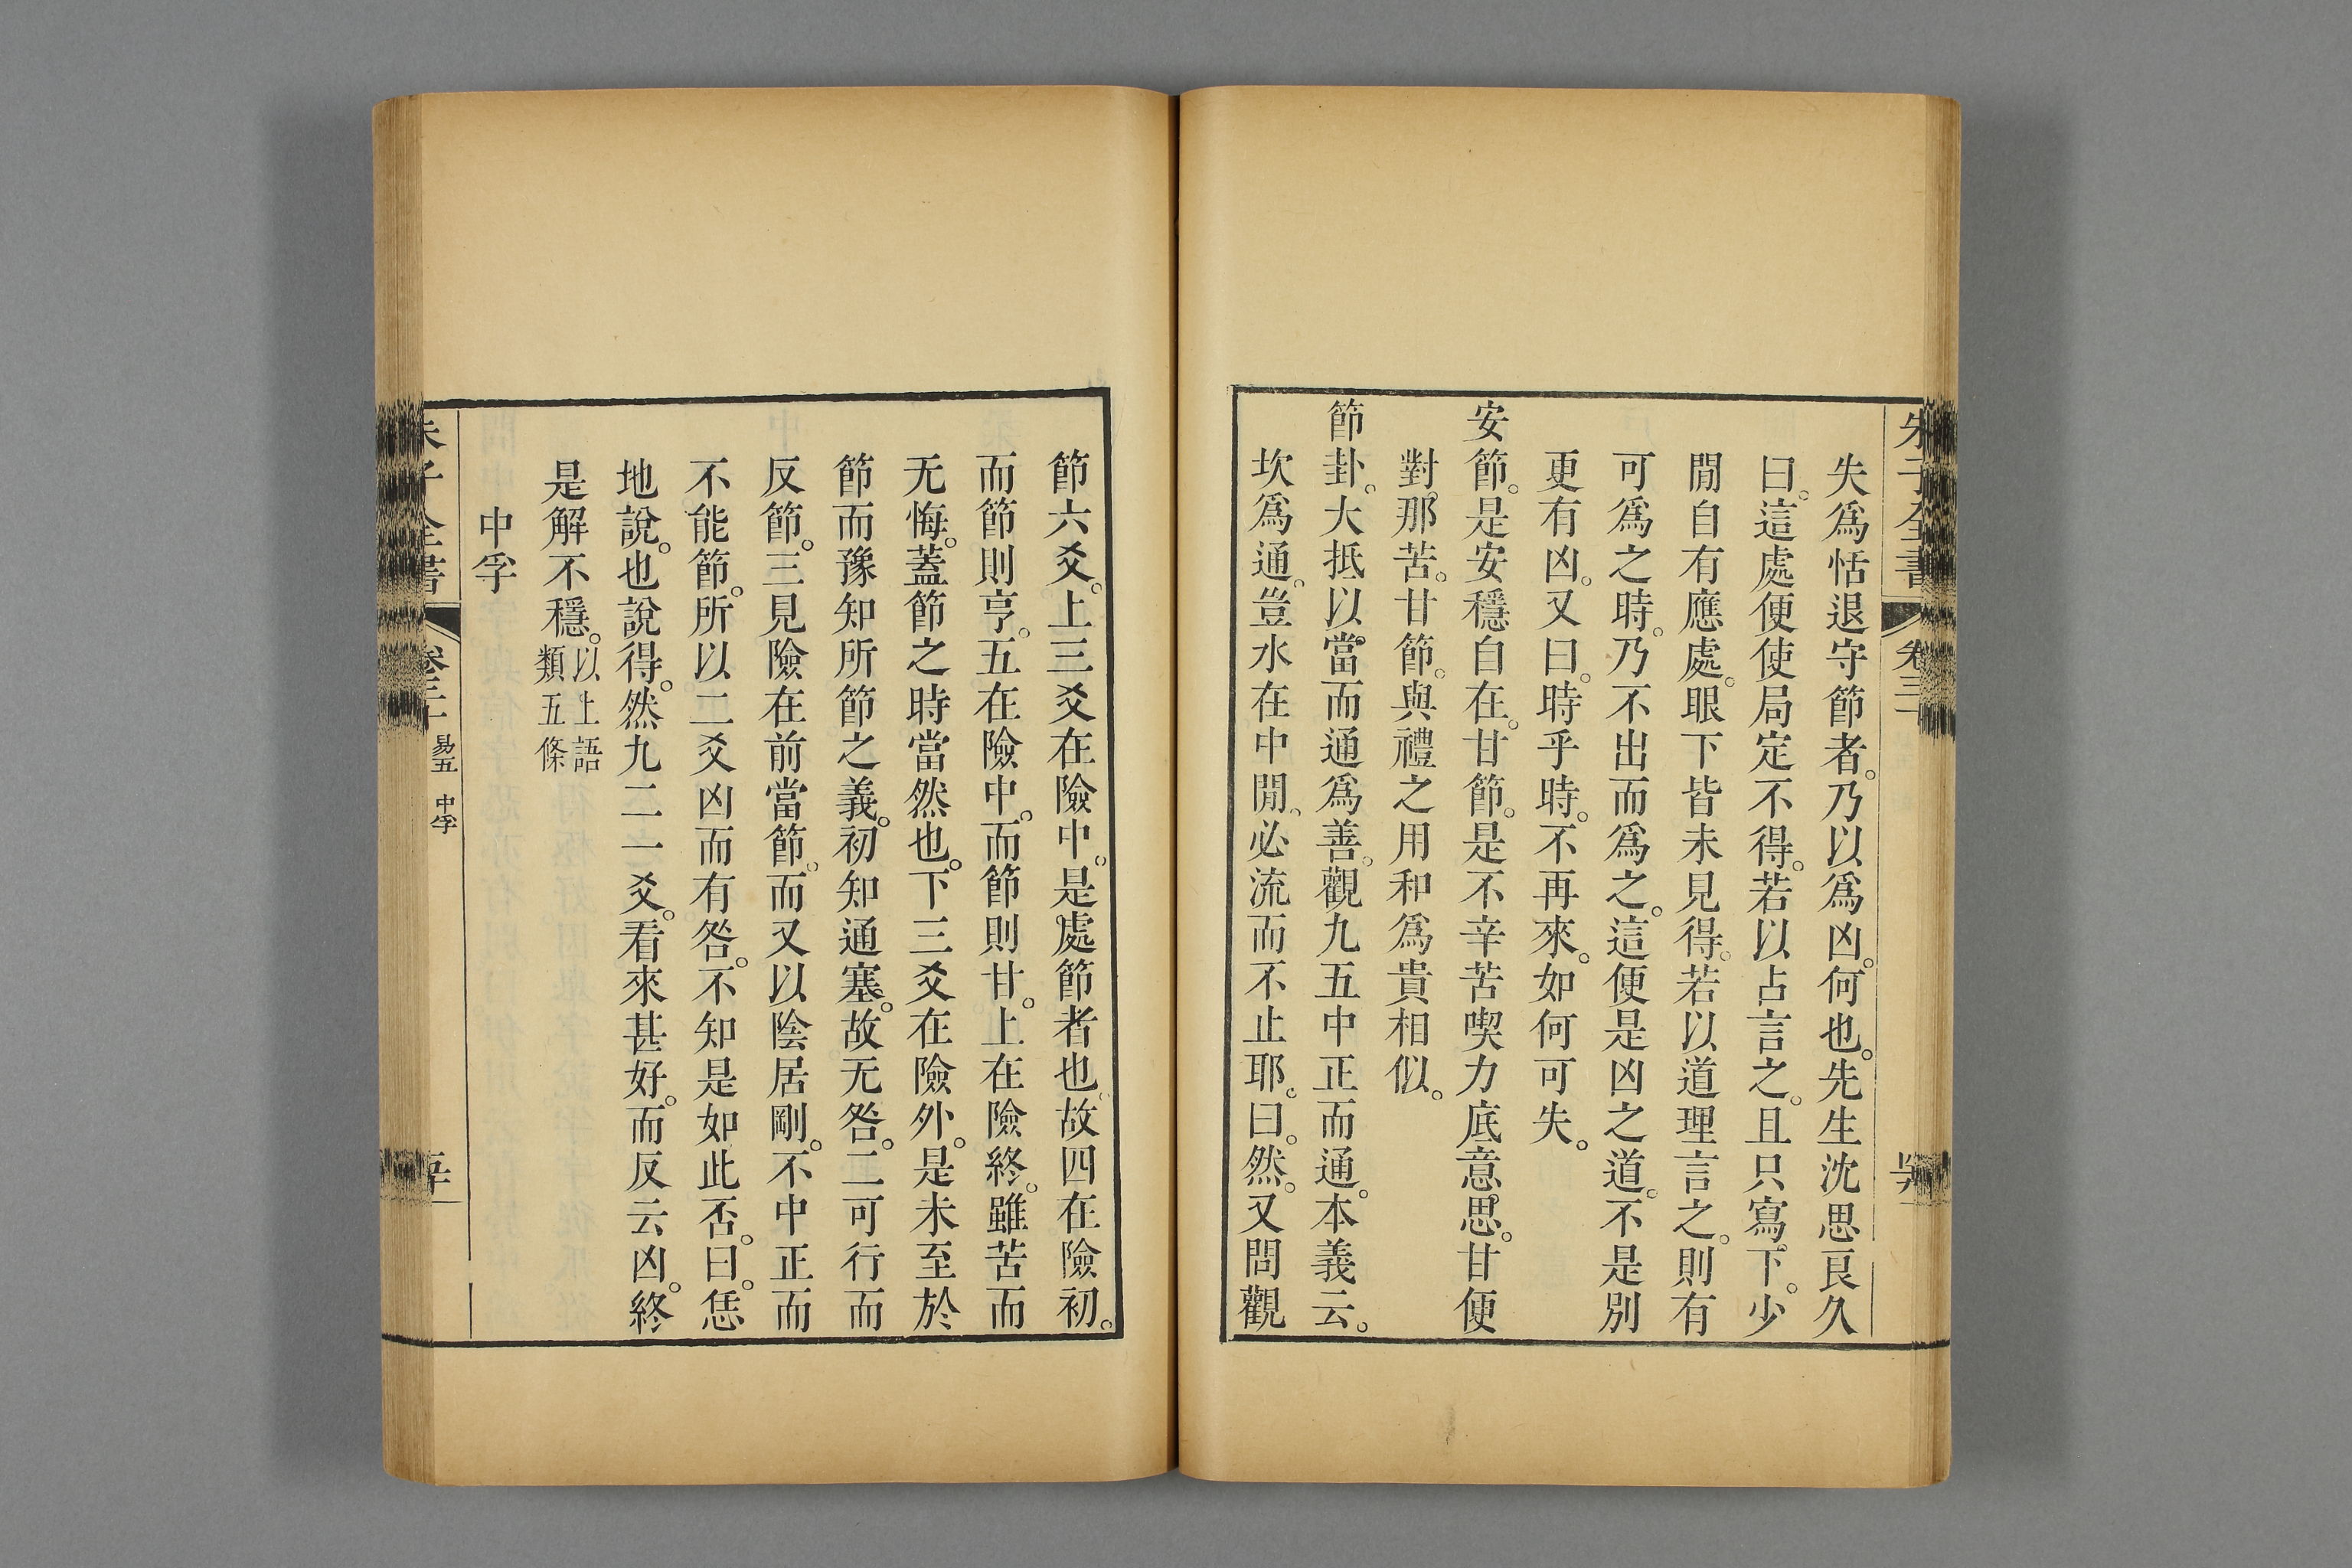 朱子全書 卷三十
失爲恬退守節者。乃以爲凶。何也。先生沈思良久
曰。這處便使局定不得。若以占言之。且只寫下。少
閒自有應處。眼下皆未見得。若以道理言之。則有
可爲之時。乃不出而爲之。這便是凶之道。不是別
更有凶。又曰。時乎時。不再來。如何可失。
安節。是安穩自在。甘節。是不辛苦喫力底意思。甘便
對那苦。甘節。與禮之用和爲貴相似。
節卦。大抵以當而通爲善。觀九五中正而通。本義云。
坎爲通。豈水在中閒。必流而不止耶。曰。然。又問觀
節六爻。上三爻在險中。是處節者也。故四在險初。
而節則亨。五在險中。而節則甘。上在險終。雖苦而
无悔。蓋節之時當然也。下三爻在險外。是未至於
節而豫知所節之義。初知通塞。故无咎。二可行而
反節。三見險在前當節。而又以陰居剛。不中正而
不能節。所以二爻凶而有咎。不知是如此否。曰。恁
地說。也說得。然九二一爻。看來甚好。而反云凶。終
是解不穩。以上語類五條
中孚
朱子全書 卷三十 易五 中孚